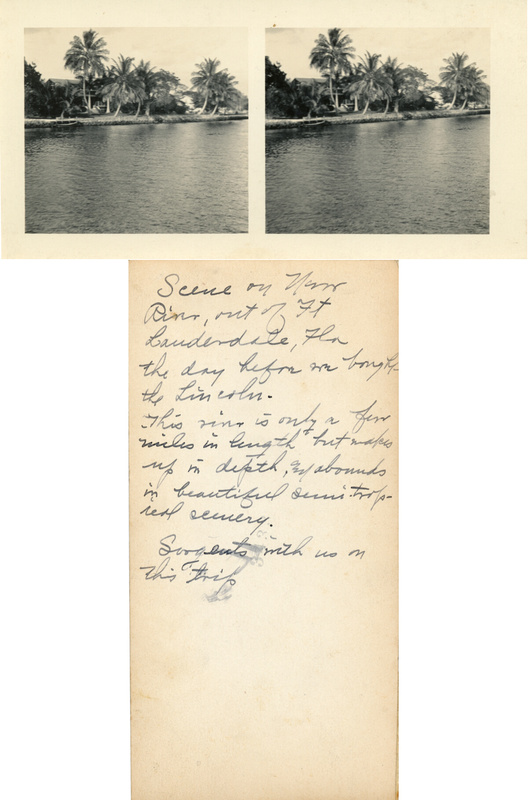 Scene on New
River, out of Ft
Lauderdale, Fla
the day before we bought
the Lincoln.
This river is only a few
miles in length but makes
up in depth, & abounds
in beautiful semi-trop-
ical scenery.
Sargents with us on
this trip